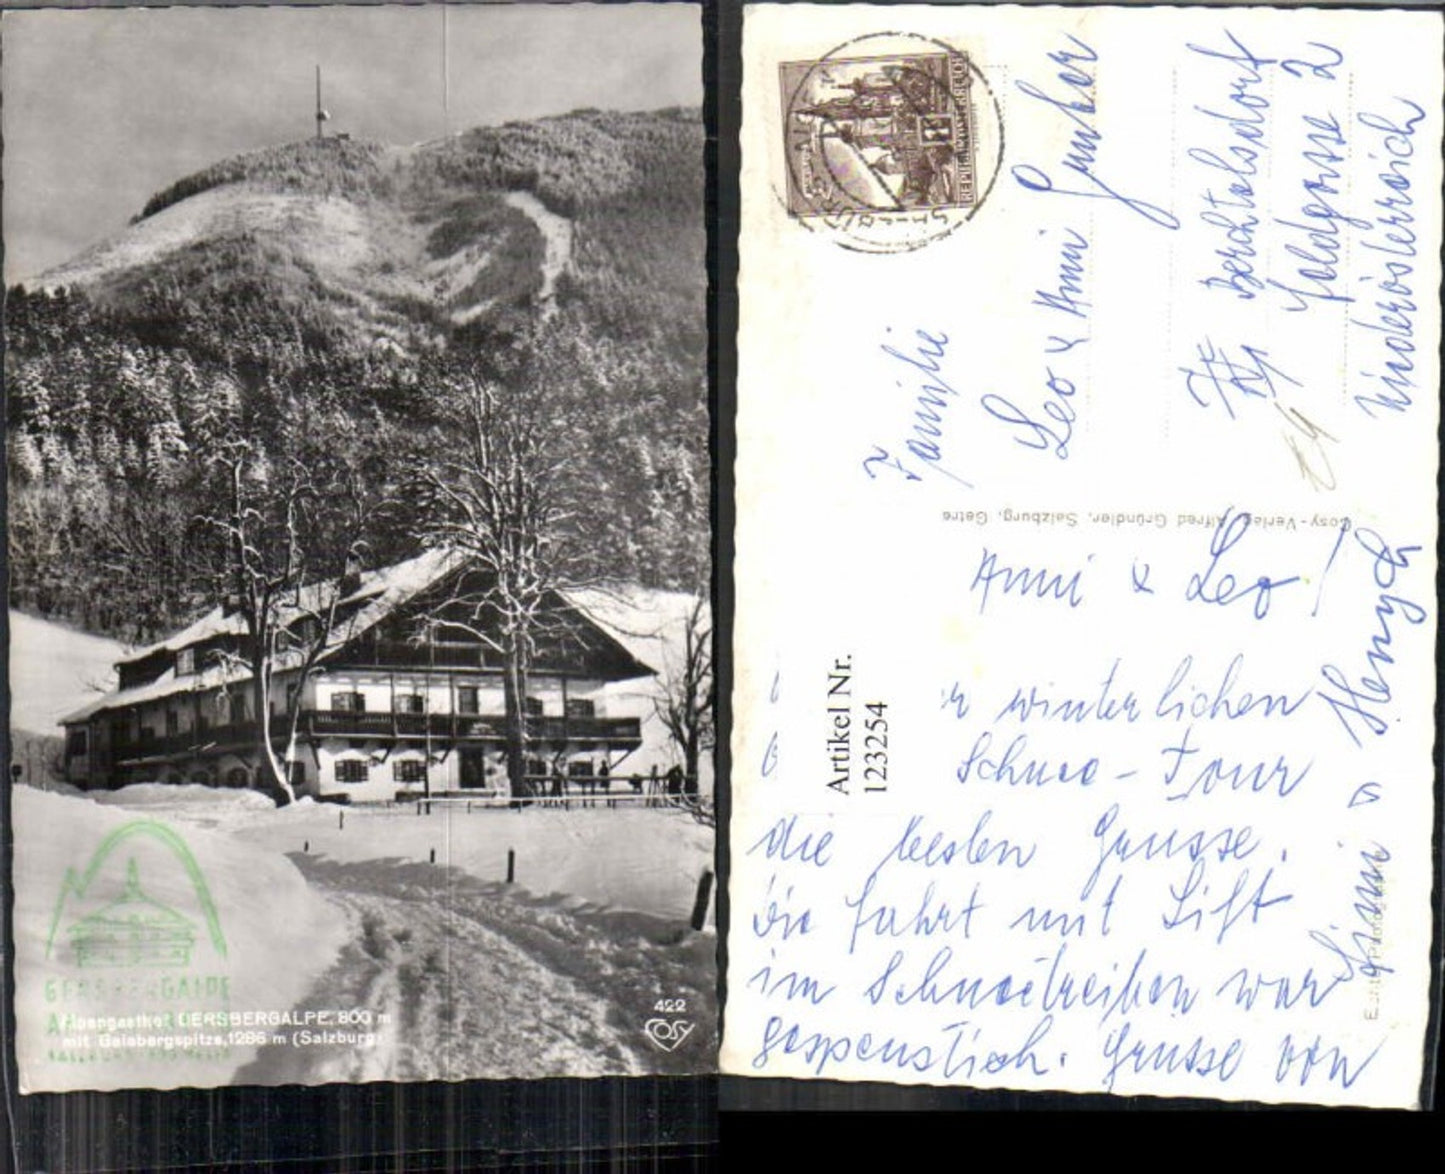 GERSBERGALPE
Alpengasthof GERSBERGALPE, 800 m
mit Gaisbergspitze, 1286 m (Salzburg)
422
COSY
REPUBLIK ÖSTERREICH
Familie
Leo & Anni
Berchtoldsdorf
2
Niederösterreich
Cosy-Verlag Alfred Gründler, Salzburg, Getre
Anni & Leo!
Artikel Nr.
123254
winterlichen
Schnee-Tour
die besten Grüsse.
Die Fahrt mit Lift
im Schneetreiben war
gespenstisch. Grüsse von